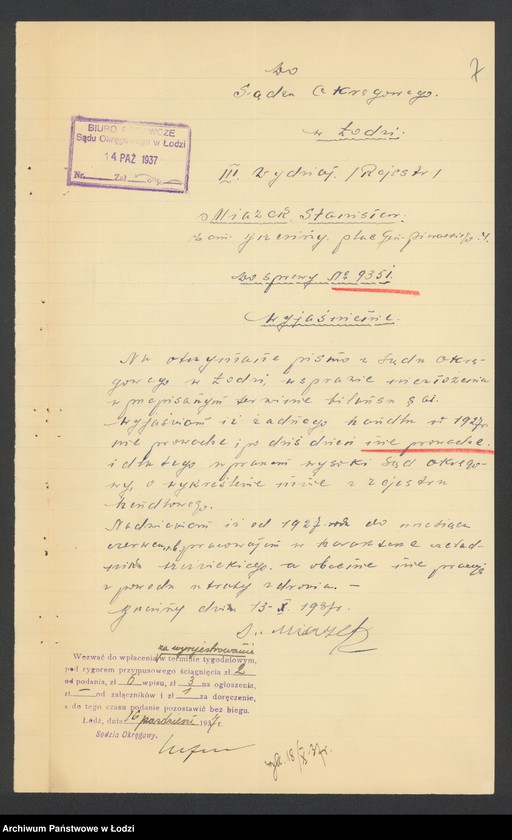 7
Do
Sądu Okręgowego.
w Łodzi.
BIURO PODAWCZE
Sądu Okręgowego w Łodzi
14 PAŹ 1937
Nr. Zał.
III Wydział /Rejestr/
Miazek Stanisław.
zam. plac Gen.
Do sprawy № 935
Wyjaśnienie.
Na otrzymane pismo z Sądu Okrę-
gowego w Łodzi, w sprawie niezłożenia
w przepisanym terminie bilansu
wyjaśniam iż żadnego handlu od 1927 r
nie prowadzę i po dziś dzień nie prowadzę.
i dlatego upraszam wysoki Sąd Okręgo-
wy, o wykreślenie mnie z rejestru
handlowego.
Nadmieniam iż od 1927 roku do miesiąca
czerwca pracowałem w charakterze
a obecnie nie pracuję
z powodu utraty zdrowia. —
dnia 13-X 1937 r.
za wyrejestrowanie
Wezwać do wpłacenia w terminie tygodniowym,
pod rygorem przymusowego ściągnięcia zł 2
od podania, zł 6 wpisu, zł 3 na ogłoszenia,
zł — od załączników i zł 1 za doręczenie,
a do tego czasu podanie pozostawić bez biegu.
Łódź, dnia 16 październ 1937 r.
Sędzia Okręgowy.
18/X 37 r.
Archiwum Państwowe w Łodzi